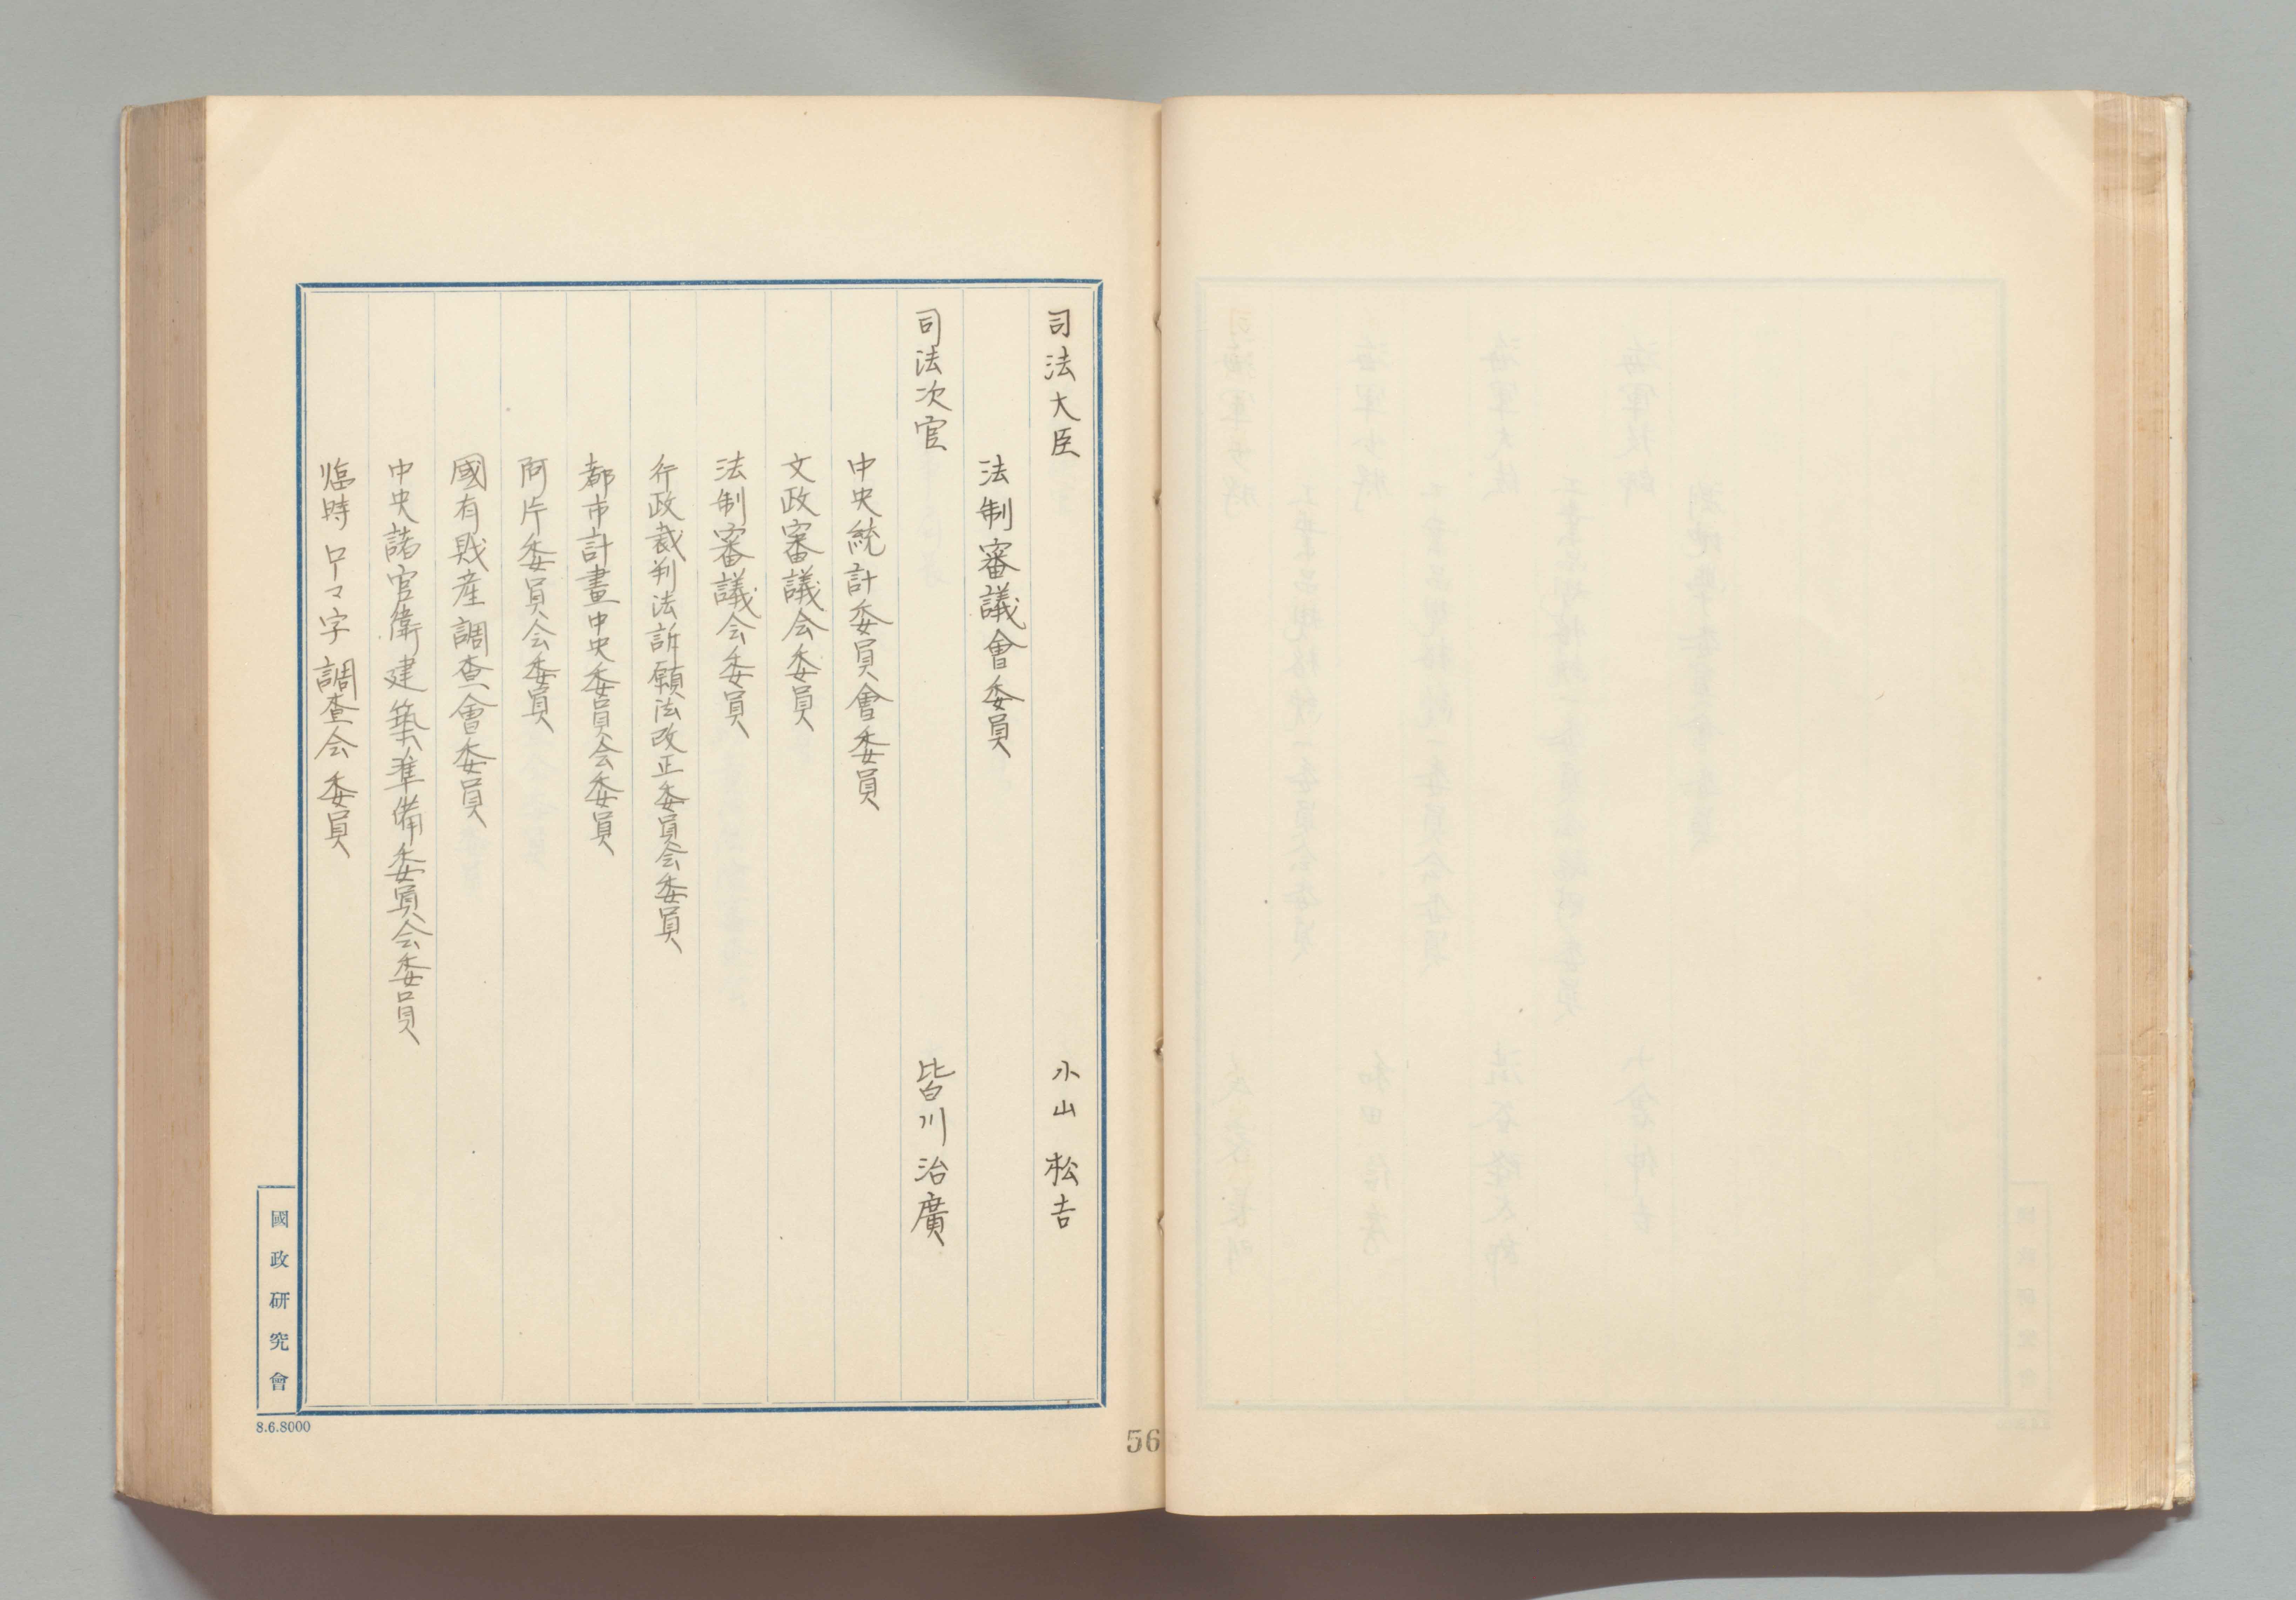 司法大臣 小山松吉
法制審議會委員
司法次官 皆川治廣
中央統計委員會委員
文政審議会委員
法制審議会委員
行政裁判法訴願法改正委員会委員
都市計畫中央委員会委員
阿片委員会委員
國有財産調査會委員
中央諸官衙建築準備委員会委員
臨時ローマ字調査会委員
國政研究會
8.6.8000
56